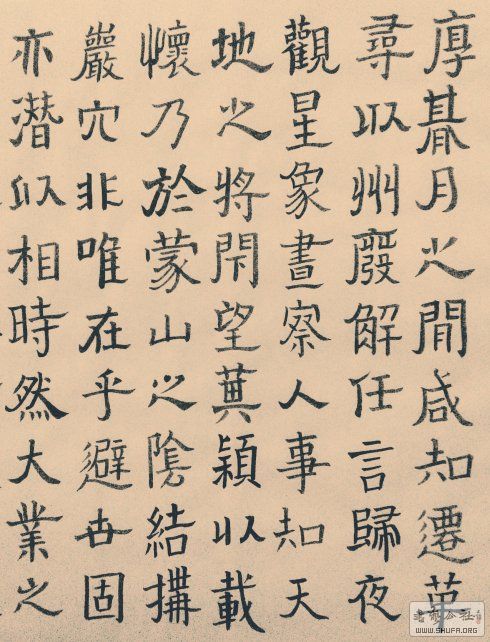 厚朞月之間咸知遷革
尋以州廢解任言歸夜
觀星象晝察人事知天
地之將閇望萁穎以載
懷乃於蒙山之陰結搆
巖穴非唯在乎避世固
亦潛以相時然大業之
書法合社
WWW.SHUFA.ORG